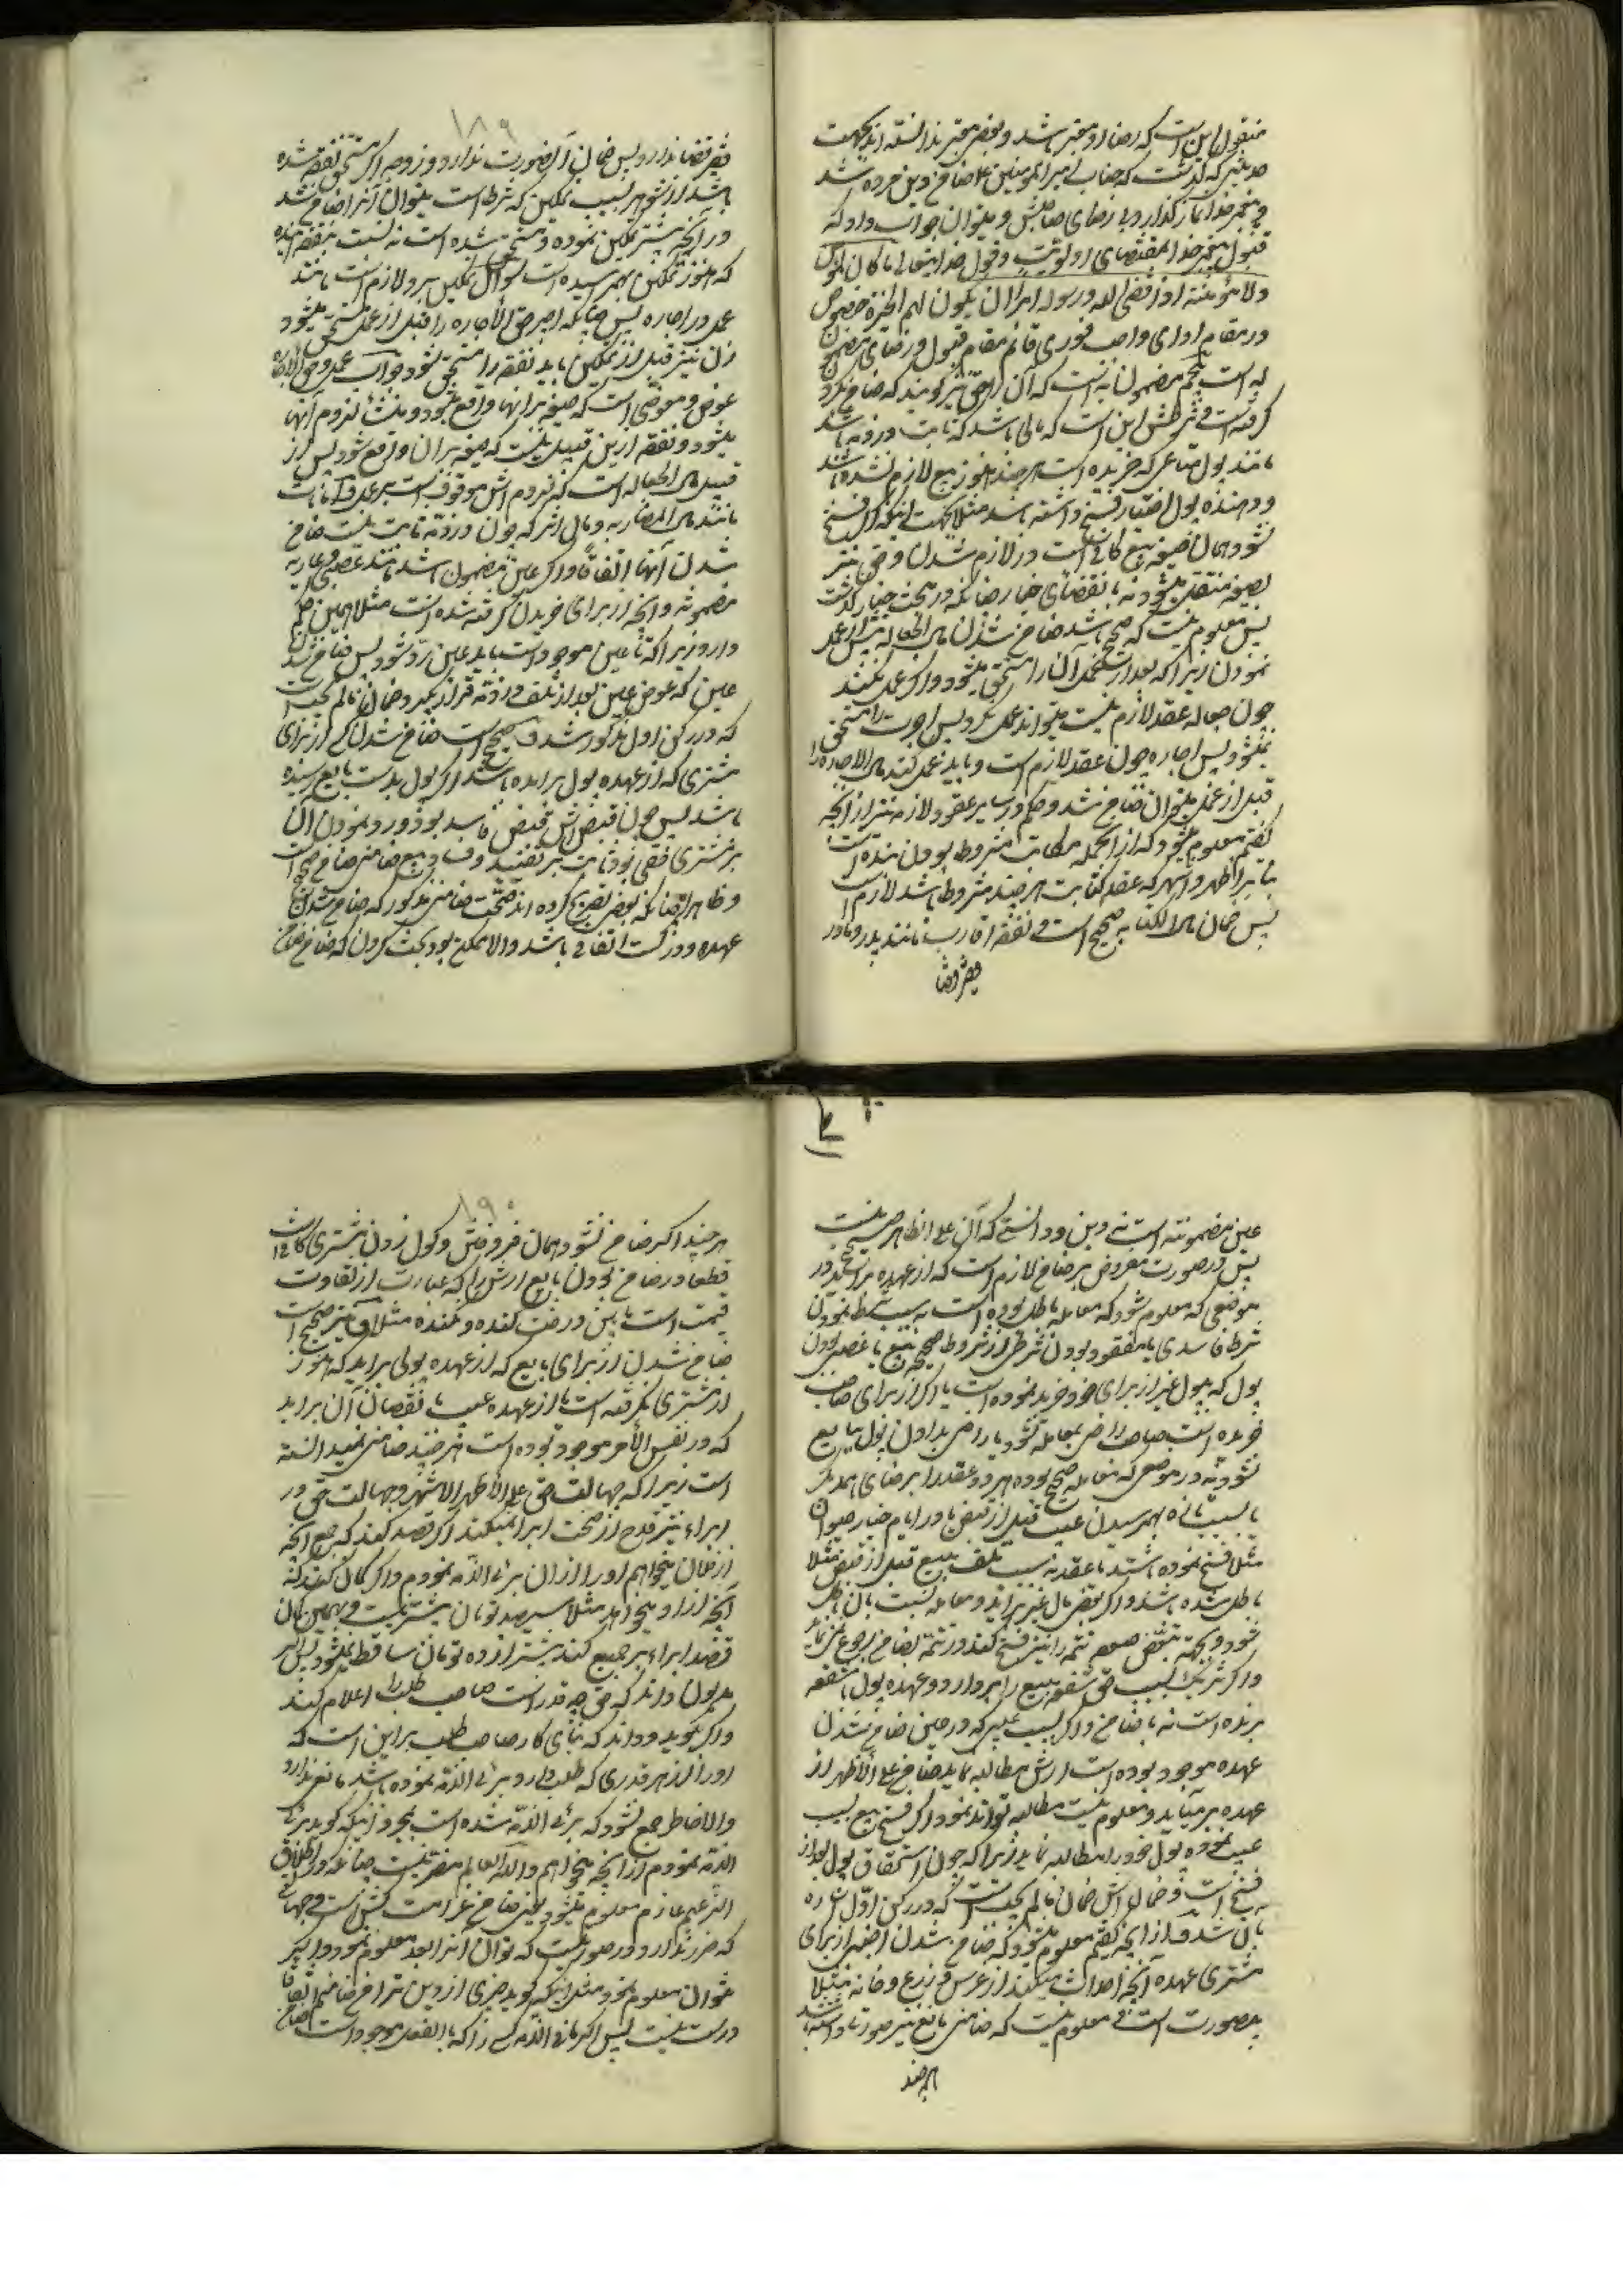 منقول این است که رضا او معتبر باشد و بعضی معتبر ندانسته اند بجهت
حدیثی که گذشت که جناب امیر المومنین علیه ضامن دین مرده شد
و پیغمبر خدا نماز گذارد بی رضای صاحبش و میتوان جواب داد که
قبول پیغمبر خدا بمقتضای اولویت و قول خدایتعالی ما کان لمؤمن
ولا مؤمنة اذا قضی الله ورسوله امرا ان یکون لهم الخیرة خصوص
در مقام ادای واجب فوری قائم مقام قبول و رضای مضمون
له است پنجم مضمون به است که آن حقی را گویند که ضامن بگردن
گرفته است و شرطش این است که مالی باشد که ثابت در ذمه باشد
مانند پول متاعی که خریده است هر چند هنوز بیع لازم نشده باشد
و دهنده پول اختیار فسخ داشته باشد مثلا بجهت اینکه اگر فسخ
نشود همان صیغه بیع کافی است در لازم شدن و حق نیز
بصیغه منتقل میشود نه بانقضای خیار چنانکه در مبحث خیار گذشت
پس معلوم نیست که صحیح باشد ضامن شدن مال الجعاله پیش از عمل
نمودن زیرا که بعد از عمل آن را مستحق میشود و اگر عمل نکند
چون جعاله عقد لازم نیست میتواند عمل نکرد پس اجرت را مستحق
نمیشود پس اجاره چون عقد لازم است و باید عمل کند مال الاجاره را
قبل از عمل میتوان ضامن شد و حکم در سایر عقود لازمه نیز از آنچه
گفتم معلوم میشود که از آنجمله مکاتب مشروط بودن بنده است
بنا بر اظهر و اشهر که عقد کتابت هر چند مشروط باشد لازم است
پس ضمان مال الکتابه صحیح است و نفقه اقارب مانند پدر و مادر
۱۸۹
چون قضا ندارد پس ضمان آن صورت ندارد و زوجه اگر مستحق نفقه شده
باشد از شوهر بسبب تمکین که شرط است میتوان آنرا ضامن شد
در آنچه پیشتر تمکین نموده و مستحق شده است نه نسبت بنفقه آینده
که هنوز تمکین بهم نرسیده است سوال تمکین بر او لازم است مانند
عمل در اجاره پس چنانکه اجیر حق الاجاره را قبل از عمل مستحق میشود
زن نیز قبل از تمکین باید نفقه را مستحق شود جواب عمل و حق الاجاره
عوض و معوضی است که صیغه بر آنها واقع میشود و منشأ لزوم آنها
میشود و نفقه از این قبیل نیست که صیغه بر آن واقع شود پس از
قبیل مال الجعاله است که لزومش موقوف است بر عمل و امانات
مانند مال المضاربه و مال الشرکه چون در ذمه ثابت نیست ضامن
شدن آنها اتفاقا و اگر عین مضمون باشد مانند غصبی و عاریه
مضمونه و آنچه از برای خریدن گرفته شده است مثلا همین حکم
دارد زیرا که تا عین موجود است باید عین رد شود پس ضامن شدن
عین که عوض عین بعد از تلف در ذمه قرار گیرد و ضمان مالم یجب است
که در رکن اول مذکور شد و صحیح است ضامن شدن کسی از برای
مشتری که از عهده پول برآمده باشد اگر پول بدست بایع رسیده
باشد پس چون قبضش قبض فاسد بود و رد نمودن آن
بر مشتری حقی بود ثابت بر تقدیر فساد بیع ضامن ضامن صحیح است
و ظاهرا چنانکه بعضی تصریح کرده اند صحت ضامنی مذکور که ضامن شدن
عهده و درک است اتفاقی باشد و الا ممکن بود بحث کردن که ضامن ضامن
عین مضمونه است نه دین و دانستی که آن علی الظاهر صحیح نیست
پس در صورت معروض بر ضامن لازم است که از عهده برآید در
موضعی که معلوم شود که معامله باطل بوده است بسبب شرط نمودن
شرط فاسدی یا مفقود بودن شرطی از شروط صحیحه بیع یا غصبی بودن
پول که پول غیر از برای خود خرید نموده است یا اگر از برای صاحب
خریده است صاحب راضی بمعامله نشود یا راضی بدادن پول ببایع
نشود نه در موضعی که معامله صحیح بوده هر دو عقد را برضای همدیگر
یا بسبب تازه بهمرسیدن عیب قبل از قبض یا در ایام خیار حیوان
مثلا فسخ نموده باشند یا عقد بسبب تلف مبیع قبل از قبض مثلا
باطل شده باشد و اگر بعضی مال غیر برآید و معامله نسبت بآن باطل
شود و بجهة تبعض صفقه تتمه را نیز فسخ کند در تتمه بضامن رجوع نمی نماید
و اگر شریک بسبب حق شفعه مبیع را بردارد و عهده پول با شفعه
برنده است نه با ضامن و اگر بسبب عیبی که در حین ضامن شدن
عهده موجود بوده است ارش مطالبه نماید ضامن علی الاظهر از
عهده بر میآید و معلوم نیست مطالبه تواند نمود اگر فسخ بیع بسبب
عیب نموده پول خود را مطالبه نماید زیرا که چون استحقاق پول بعد از
فسخ است و ضمانش ضمان مالم یجب است که در رکن اول اشاره
بآن شد و از آنچه گفتیم معلوم میشود که ضامن شدن اجنبی از برای
مشتری عهده آنچه احداث میکند از غرس و زرع و خانه مثلا
بیصورت است و معلوم نیست که ضامنی بایع نیز صورتی داشته باشد
هر چند
۱۹۰
هر چند اگر ضامن نشود همان فروختن و گول زدن مشتری کافی است
قطعا در ضامن بودن بایع ارش را که عبارت از تفاوت
قیمت است مابین درخت کنده و نکنده مثلا و نیز صحیح است
ضامن شدن از برای بایع که از عهده پولی برآید که هنوز
از مشتری نگرفته است یا از عهده عیب یا نقصان آن برآید
که در نفس الامر موجود بوده است هر چند ضامن نمیدانسته
است زیرا که جهالت حق علی الاظهر الاشهر و جهالت حق در
ابراء نیز قدح از صحت ابرا نمیکند اگر قصد کند که جمیع آنچه
از فلان میخواهم او را از آن برئ الذمه نمودم و اگر گمان کند که
آنچه از او میخواهد مثلا سیصد تومان بیشتر نیست و بهمین گمان
قصد ابراء جمیع کند بیشتر از ده تومان ساقط نمیشود پس اگر
مدیون داند که حق چه قدر است صاحب طلب را اعلام کند
و اگر نگوید و داند که بنای کار صاحب طلب براین است که
او را از هر قدری که طلب دارد برئ الذمه نموده باشد مانعی ندارد
والا خاطر جمع نشود که برئ الذمه شده است بمجرد اینکه گوید برئ
الذمه نمودم از آنچه میخواهم و الله العالم مضر نیست چنانکه از اطلاق
الزعیم غارم معلوم میشود یعنی ضامن غرامت کش است و جهالتی
که ضرر ندارد در صورتیست که توان آنرا بعد معلوم نمود و اگر
نتوان معلوم نمود مثل اینکه گوید چیزی از دین ترا ضامنم اتفاقا
درست نیست پس اگر مافی الذمه کسی را که بالفعل موجود است ضامن